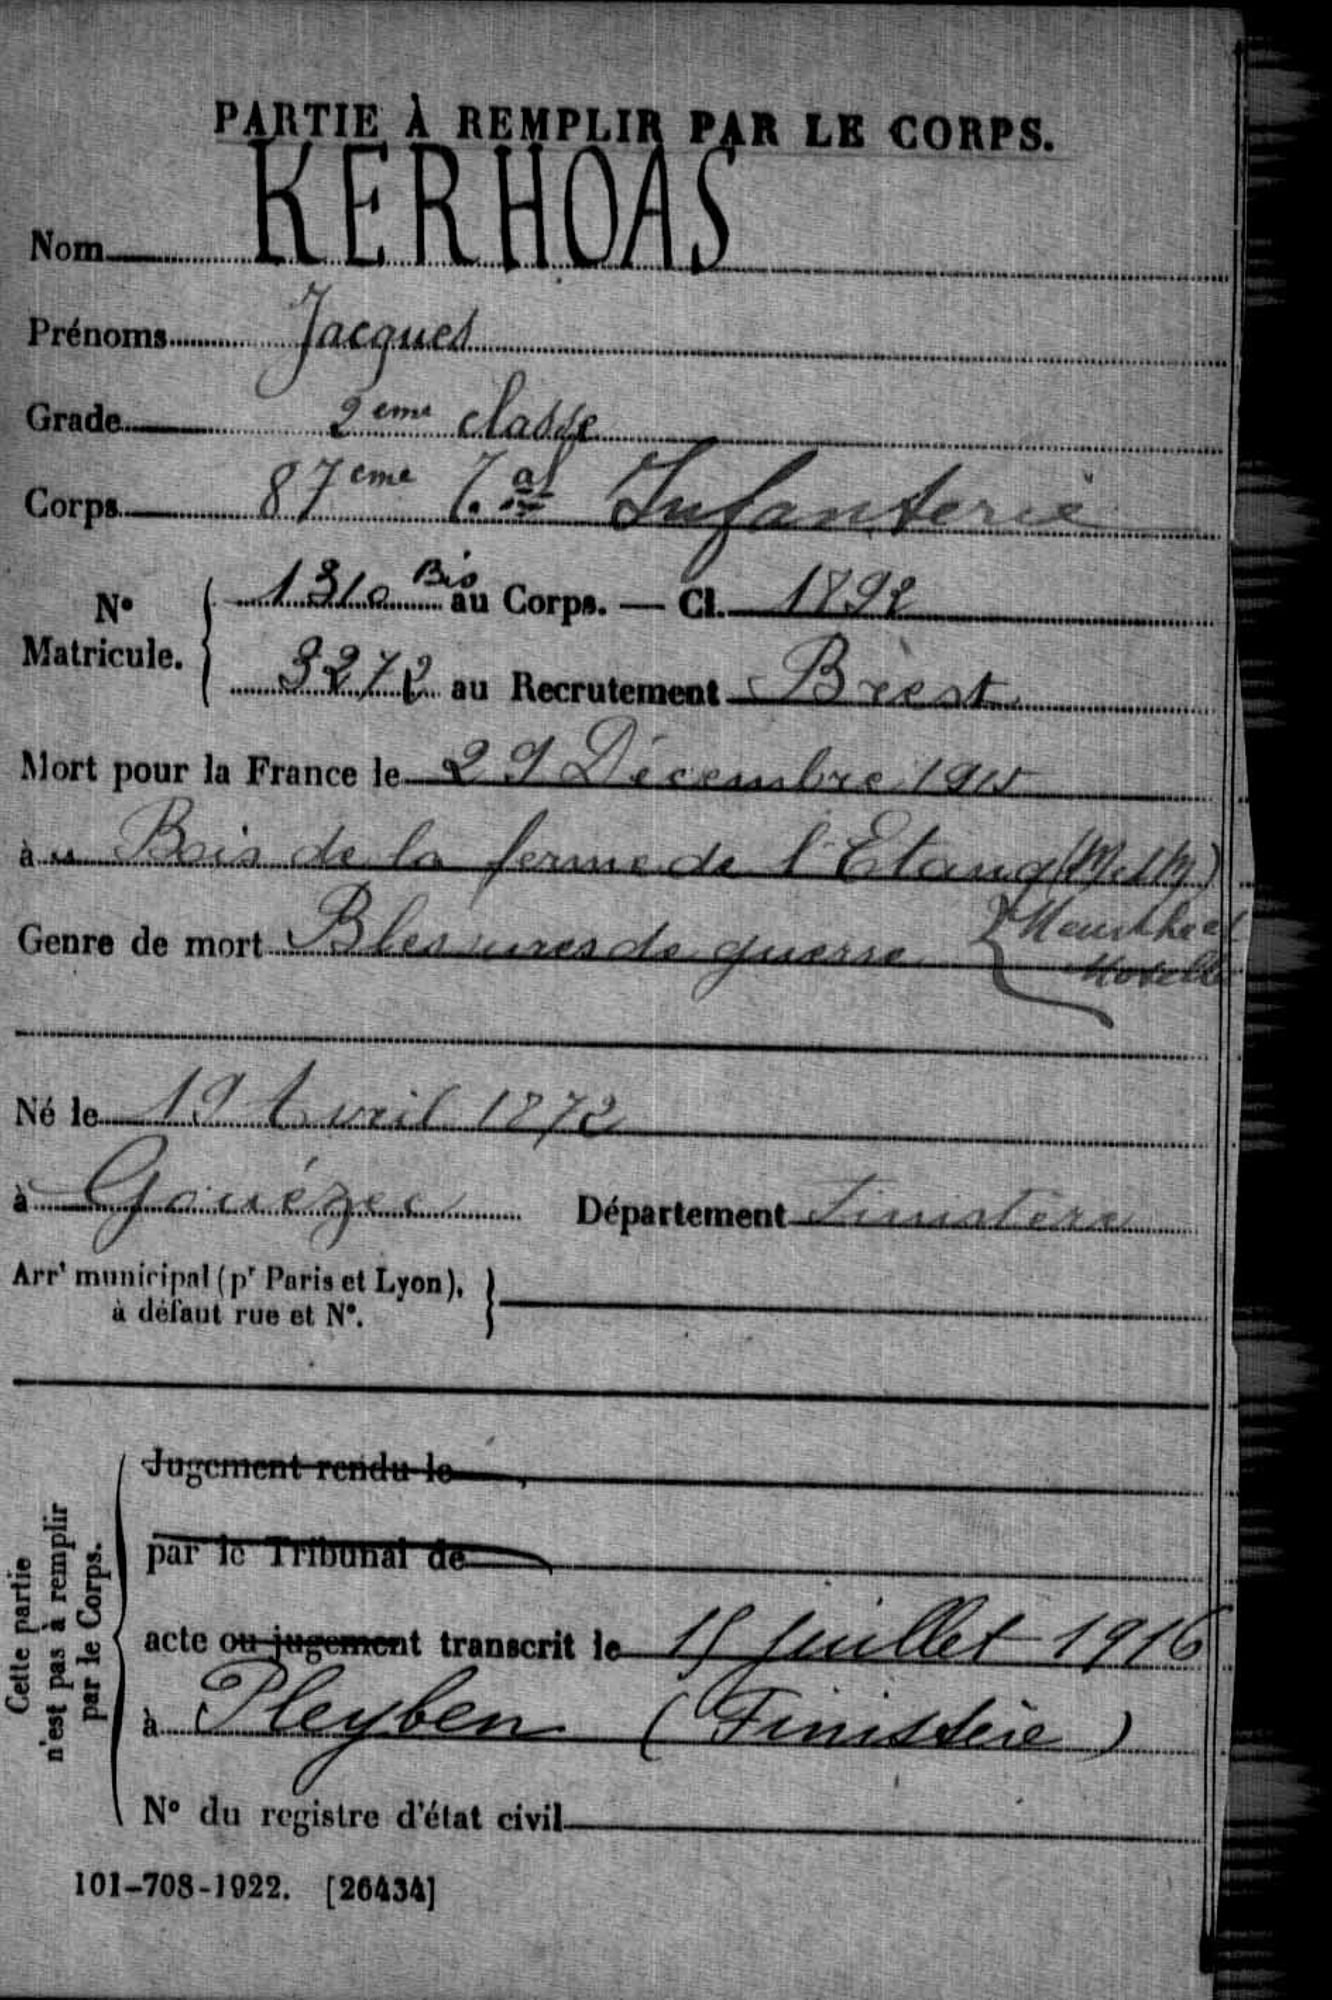 PARTIE À REMPLIR PAR LE CORPS.
Nom KERHOAS
Prénoms Jacques
Grade 2eme classe
Corps 87eme T.al Infanterie
N° Matricule. 1310 Bis au Corps. — Cl. 1892
3272 au Recrutement Brest
Mort pour la France le 29 Décembre 1915
à Bois de la ferme de l'Etang (M et M)
Genre de mort Blessures de guerre Meurthe et
Moselle
Né le 19 Avril 1872
à Gouézec Département Finistère
Arrt municipal (pr Paris et Lyon),
à défaut rue et N°.
Cette partie
n'est pas à remplir
par le Corps.
Jugement rendu le
par le Tribunal de
acte ou jugement transcrit le 15 Juillet 1916
à Pleyben (Finistère)
N° du registre d'état civil
101-708-1922. [26434]